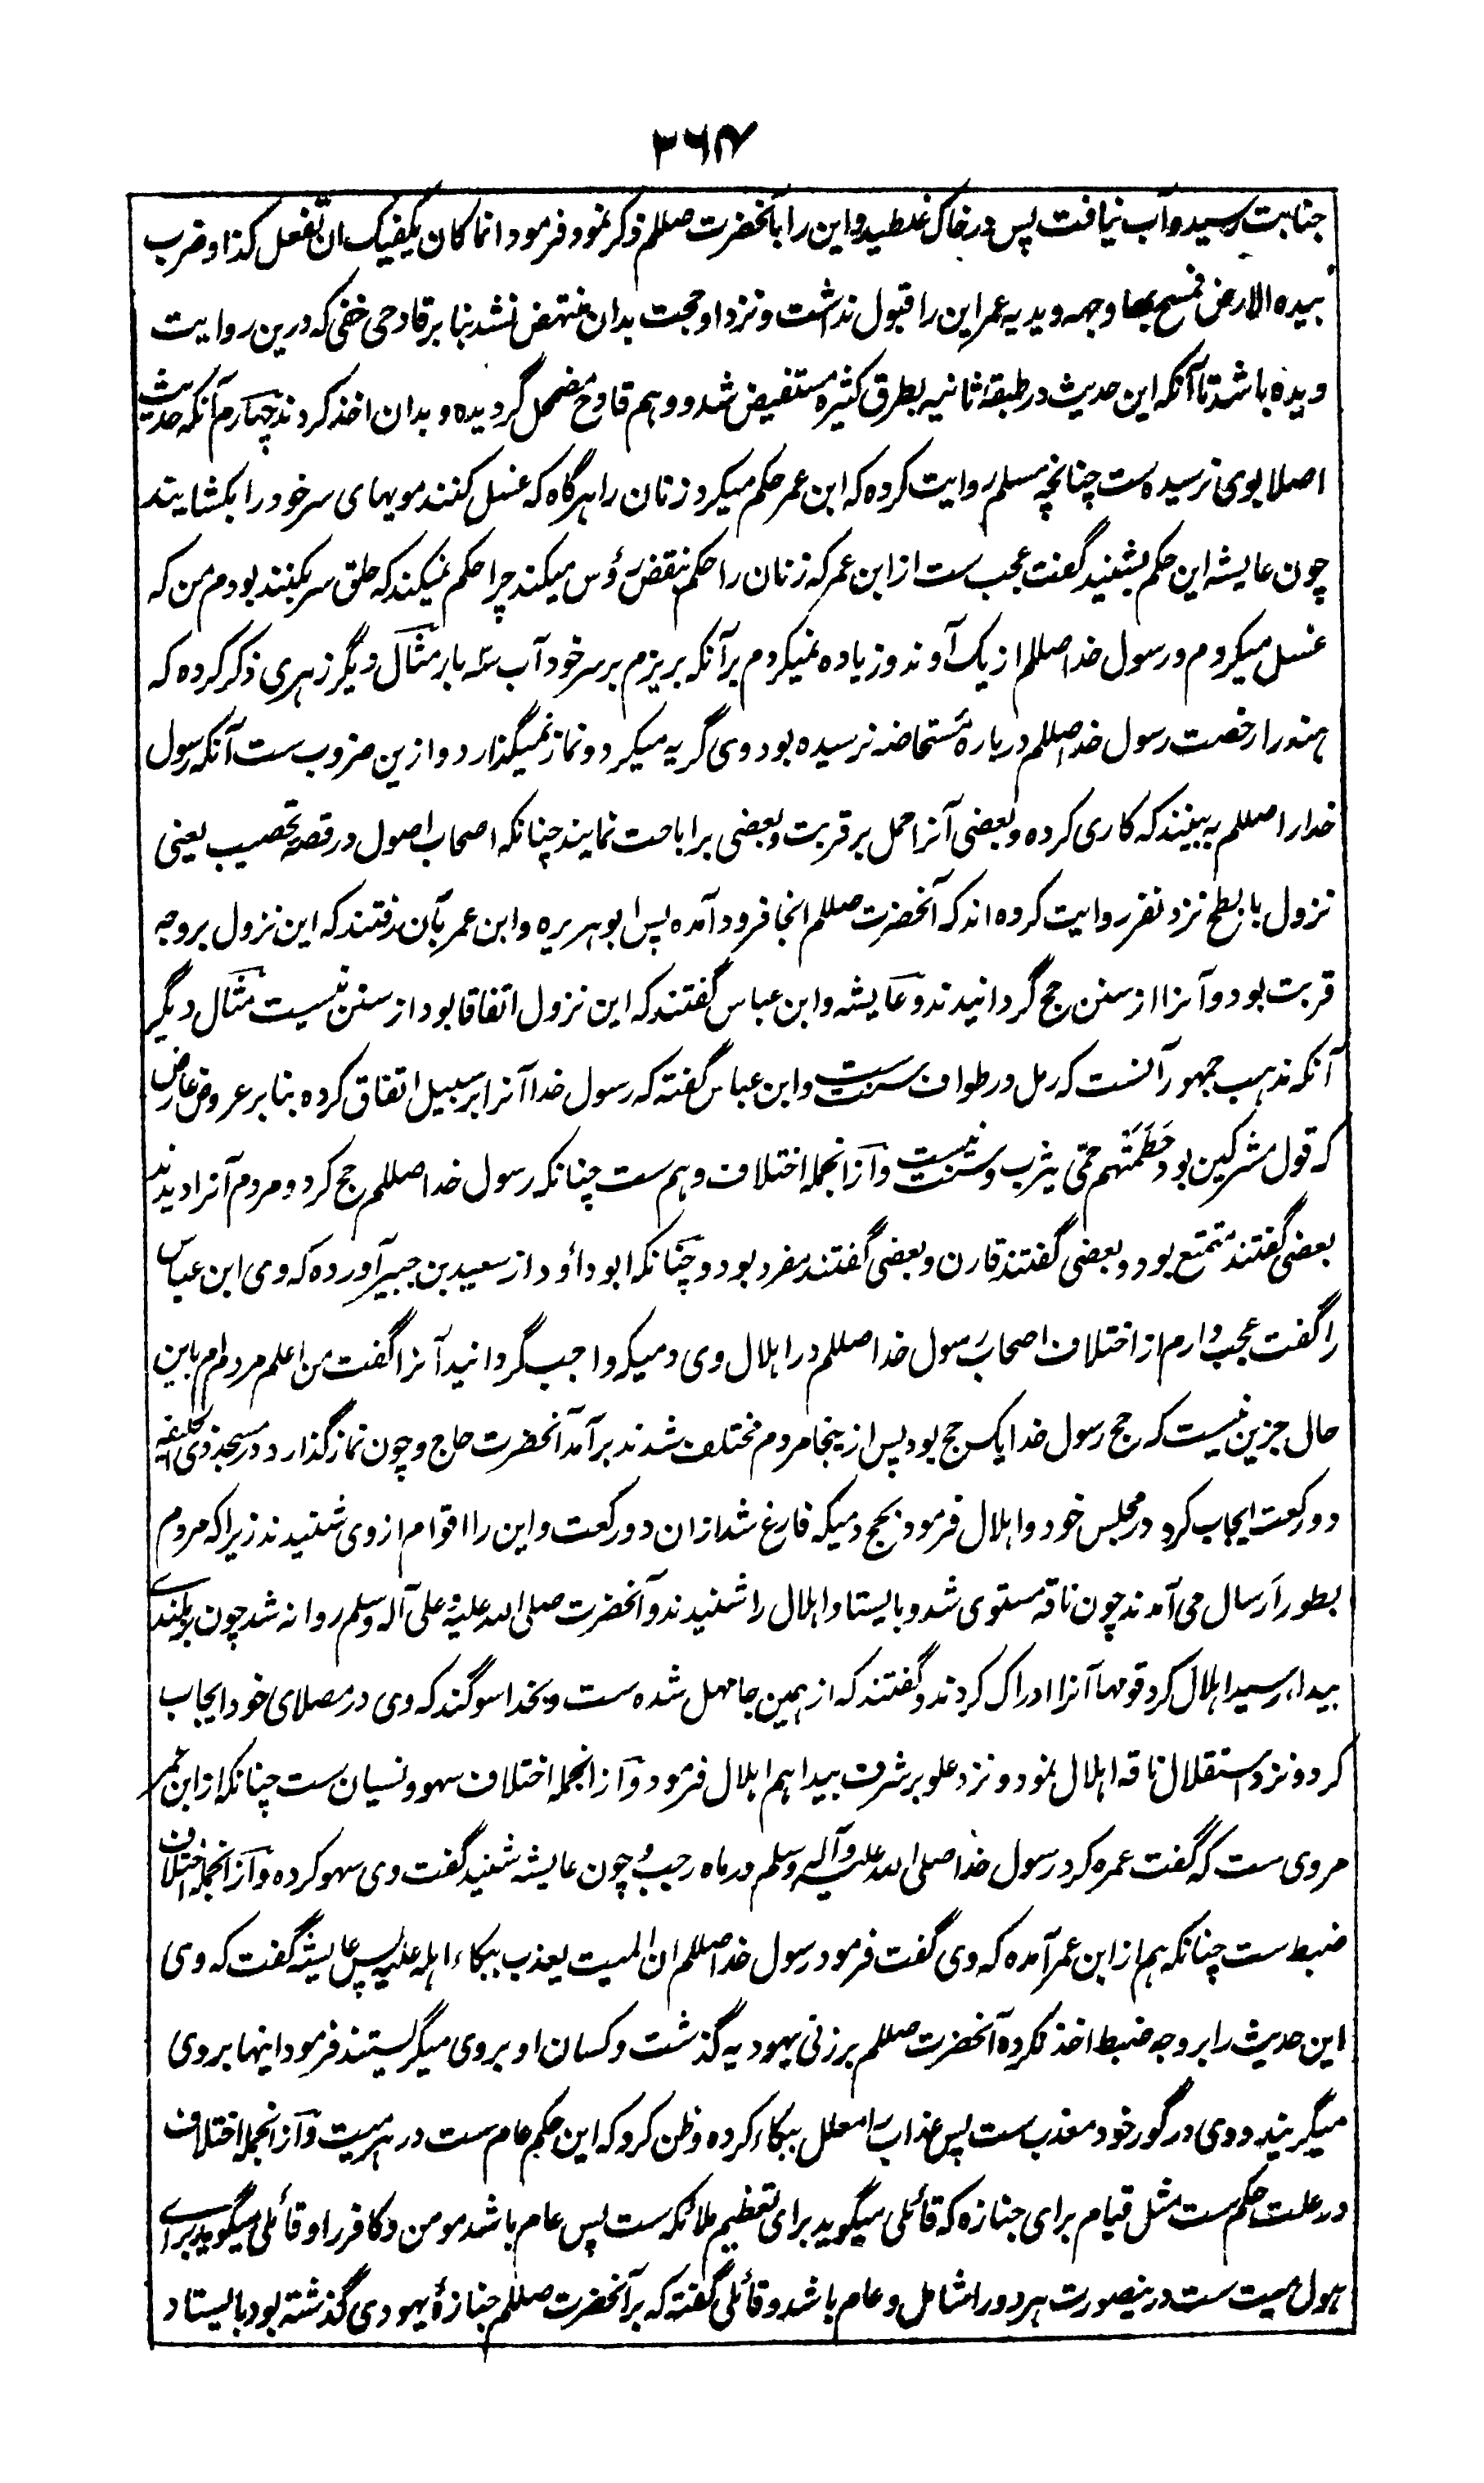 ۳۶۷
جنابت رسید و آب نیافت پس در خاک غلطید و این را بآنحضرت صللم ذکر نمود فرمود انما کان یکفیک ان تفعل کذا و ضرب
بیده الارض فمسح بها وجهه ویدیه عمر این را قبول نداشت و نزد او حجت بدان منتهض نشد بنا بر قادحی خفی که درین روایت
ویده باشد تا آنکه این حدیث در طبقۀ ثانیه بطرق کثیره مستفیض شد و وهم قادح مضمحل گردیده و بدان اخذ کردند چهارم آنکه حدیث
اصلا بوی نرسیده ست چنانچه مسلم روایت کرده که ابن عمر حکم میکرد زنان را هرگاه که غسل کنند مویهای سر خود را بکشایند
چون عایشه این حکم بشنید گفت عجب ست از ابن عمر که زنان را حکم بنقض رؤس میکند چرا حکم نمیکند که حلق سر بکنند بودم من که
غسل میکردم و رسول خدا صللم از یک آوند و زیاده نمیکردم برآنکه بریزم بر سر خود آب سه بار مثال دیگر زهری ذکر کرده که
هند را رخصت رسول خدا صللم دربارۀ مستحاضه نرسیده بود وی گریه میکرد و نماز نمیگذارد و ازین ضروب ست آنکه رسول
خدا را صللم به بینند که کاری کرده و بعضی آنرا حمل بر قربت و بعضی بر اباحت نمایند چنانکه اصحاب اصول در قصۀ تحصیب یعنی
نزول بابطح نزد نفر روایت کرده اند که آنحضرت صللم انجا فرود آمده پس ابوهریره و ابن عمر بآن رفتند که این نزول بر وجه
قربت بود و آنرا از سنن حج گردانیدند و عایشه و ابن عباس گفتند که این نزول اتفاقا بود از سنن نیست مثال دیگر
آنکه مذهب جمهور آنست که رمل در طواف سنت ست و ابن عباس گفته که رسول خدا آنرا بر سبیل اتفاق کرده بنا بر عروض عارض
که قول مشرکین بود حَطَمَتهم حمّی یثرب و سنت نیست و از انجمله اختلاف وهم ست چنانکه رسول خدا صللم حج کرد و مردم آنرا دیدند
بعضی گفتند متمتع بود و بعضی گفتند قارن و بعضی گفتند مفرد بود و چنانکه ابوداؤد از سعید بن جبیر آورده که وی ابن عباس
را گفت عجب دارم از اختلاف اصحاب رسول خدا صللم در اهلال وی دمیکه واجب گردانید آنرا گفت من اعلم مردم ام باین
حال جزین نیست که حج رسول خدا یک حج بود پس ازینجا مردم مختلف شدند برآمد آنحضرت حاج و چون نماز گذارد در مسجد ذی الحلیفه
دو رکعت ایجاب کرد در مجلس خود و اهلال فرمود بحج دمیکه فارغ شد ازان دو رکعت و این را اقوام از وی شنیدند زیرا که مردم
بطور ارسال می آمدند چون ناقه مستوی شد و بایستاد اهلال را شنیدند و آنحضرت صلی الله علیه و علی آله وسلم روانه شد چون بر بلندی
بیداء رسید اهلال کرد قومها آنرا ادراک کردند و گفتند که از همین جا مهل شده ست و بخدا سوگند که وی در مصلای خود ایجاب
کرد و نزد استقلال ناقه اهلال نمود و نزد علو بر شرف بیدا هم اهلال فرمود و از انجمله اختلاف سهو و نسیان ست چنانکه از ابن عمر
مروی ست که گفت عمره کرد رسول خدا صلی الله علیه وآله وسلم در ماه رجب و چون عایشه شنید گفت وی سهو کرده و از انجمله اختلاف
ضبط ست چنانکه هم از ابن عمر آمده که وی گفت فرمود رسول خدا صللم ان المیت یعذب ببکاء اهله علیه پس عایشه گفت که وی
این حدیث را بر وجه ضبط اخذ نکرده آنحضرت صللم بر زنی یهودیه گذشت و کسان او بروی میگریستند فرمود اینها بروی
میگریند و وی در گور خود معذب ست پس عذاب را معلل ببکاء کرده و ظن کرد که این حکم عام ست در هر میت و از انجمله اختلاف
در علت حکم ست مثل قیام برای جنازه که قائلی میگوید برای تعظیم ملائکه ست پس عام باشد مومن و کافر را و قائلی میگوید برای
هول میت ست درینصورت هر دو را شامل و عام باشد و قائلی گفته که بر آنحضرت صللم جنازۀ یهودی گذشته بود بایستاد